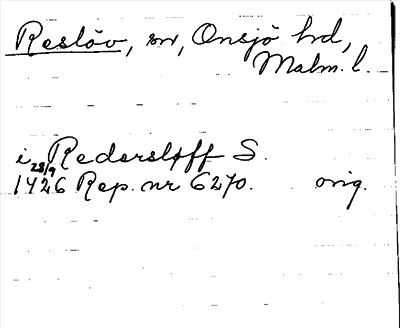 Reslöv, sn, Onsjö hd,
Malm. l.
i Redersløff S.
28/9
1426 Rep. nr 6270. orig.